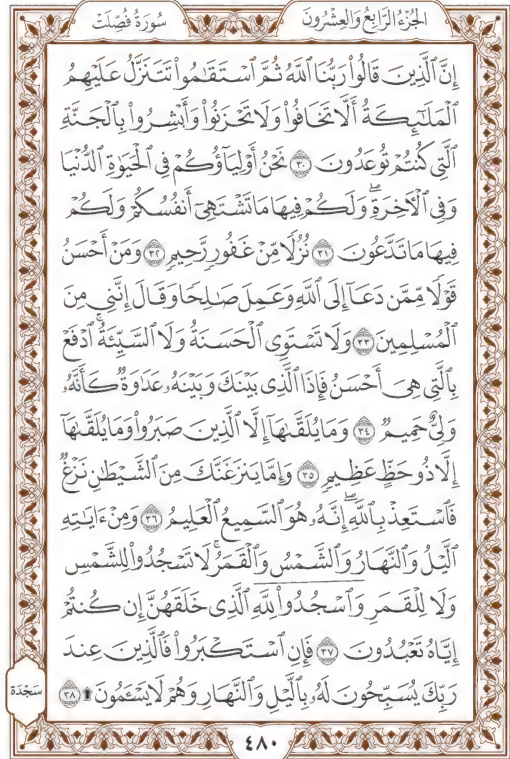 الجُزْءُ الرَّابِعُ وَالعِشْرُونَ
سُورَةُ فُصِّلَتْ
إِنَّ ٱلَّذِينَ قَالُواْ رَبُّنَا ٱللَّهُ ثُمَّ ٱسْتَقَٰمُواْ تَتَنَزَّلُ عَلَيْهِمُ
ٱلْمَلَٰٓئِكَةُ أَلَّا تَخَافُواْ وَلَا تَحْزَنُواْ وَأَبْشِرُواْ بِٱلْجَنَّةِ
ٱلَّتِي كُنتُمْ تُوعَدُونَ ٣٠ نَحْنُ أَوْلِيَآؤُكُمْ فِي ٱلْحَيَوٰةِ ٱلدُّنْيَا
وَفِي ٱلْأَخِرَةِۖ وَلَكُمْ فِيهَا مَا تَشْتَهِيٓ أَنفُسُكُمْ وَلَكُمْ
فِيهَا مَا تَدَّعُونَ ٣١ نُزُلًا مِّنْ غَفُورٍ رَّحِيمٍ ٣٢ وَمَنْ أَحْسَنُ
قَوْلًا مِّمَّن دَعَآ إِلَى ٱللَّهِ وَعَمِلَ صَٰلِحًا وَقَالَ إِنَّنِي مِنَ
ٱلْمُسْلِمِينَ ٣٣ وَلَا تَسْتَوِي ٱلْحَسَنَةُ وَلَا ٱلسَّيِّئَةُۚ ٱدْفَعْ
بِٱلَّتِي هِيَ أَحْسَنُ فَإِذَا ٱلَّذِي بَيْنَكَ وَبَيْنَهُۥ عَدَٰوَةٌ كَأَنَّهُۥ
وَلِيٌّ حَمِيمٌ ٣٤ وَمَا يُلَقَّىٰهَآ إِلَّا ٱلَّذِينَ صَبَرُواْ وَمَا يُلَقَّىٰهَآ
إِلَّا ذُو حَظٍّ عَظِيمٍ ٣٥ وَإِمَّا يَنزَغَنَّكَ مِنَ ٱلشَّيْطَٰنِ نَزْغٌ
فَٱسْتَعِذْ بِٱللَّهِۖ إِنَّهُۥ هُوَ ٱلسَّمِيعُ ٱلْعَلِيمُ ٣٦ وَمِنْ ءَايَٰتِهِ
ٱلَّيْلُ وَٱلنَّهَارُ وَٱلشَّمْسُ وَٱلْقَمَرُۚ لَا تَسْجُدُواْ لِلشَّمْسِ
وَلَا لِلْقَمَرِ وَٱسْجُدُواْ لِلَّهِ ٱلَّذِي خَلَقَهُنَّ إِن كُنتُمْ
إِيَّاهُ تَعْبُدُونَ ٣٧ فَإِنِ ٱسْتَكْبَرُواْ فَٱلَّذِينَ عِندَ
رَبِّكَ يُسَبِّحُونَ لَهُۥ بِٱلَّيْلِ وَٱلنَّهَارِ وَهُمْ لَا يَسْـَٔمُونَ۩ ٣٨
سَجْدَة
٤٨٠